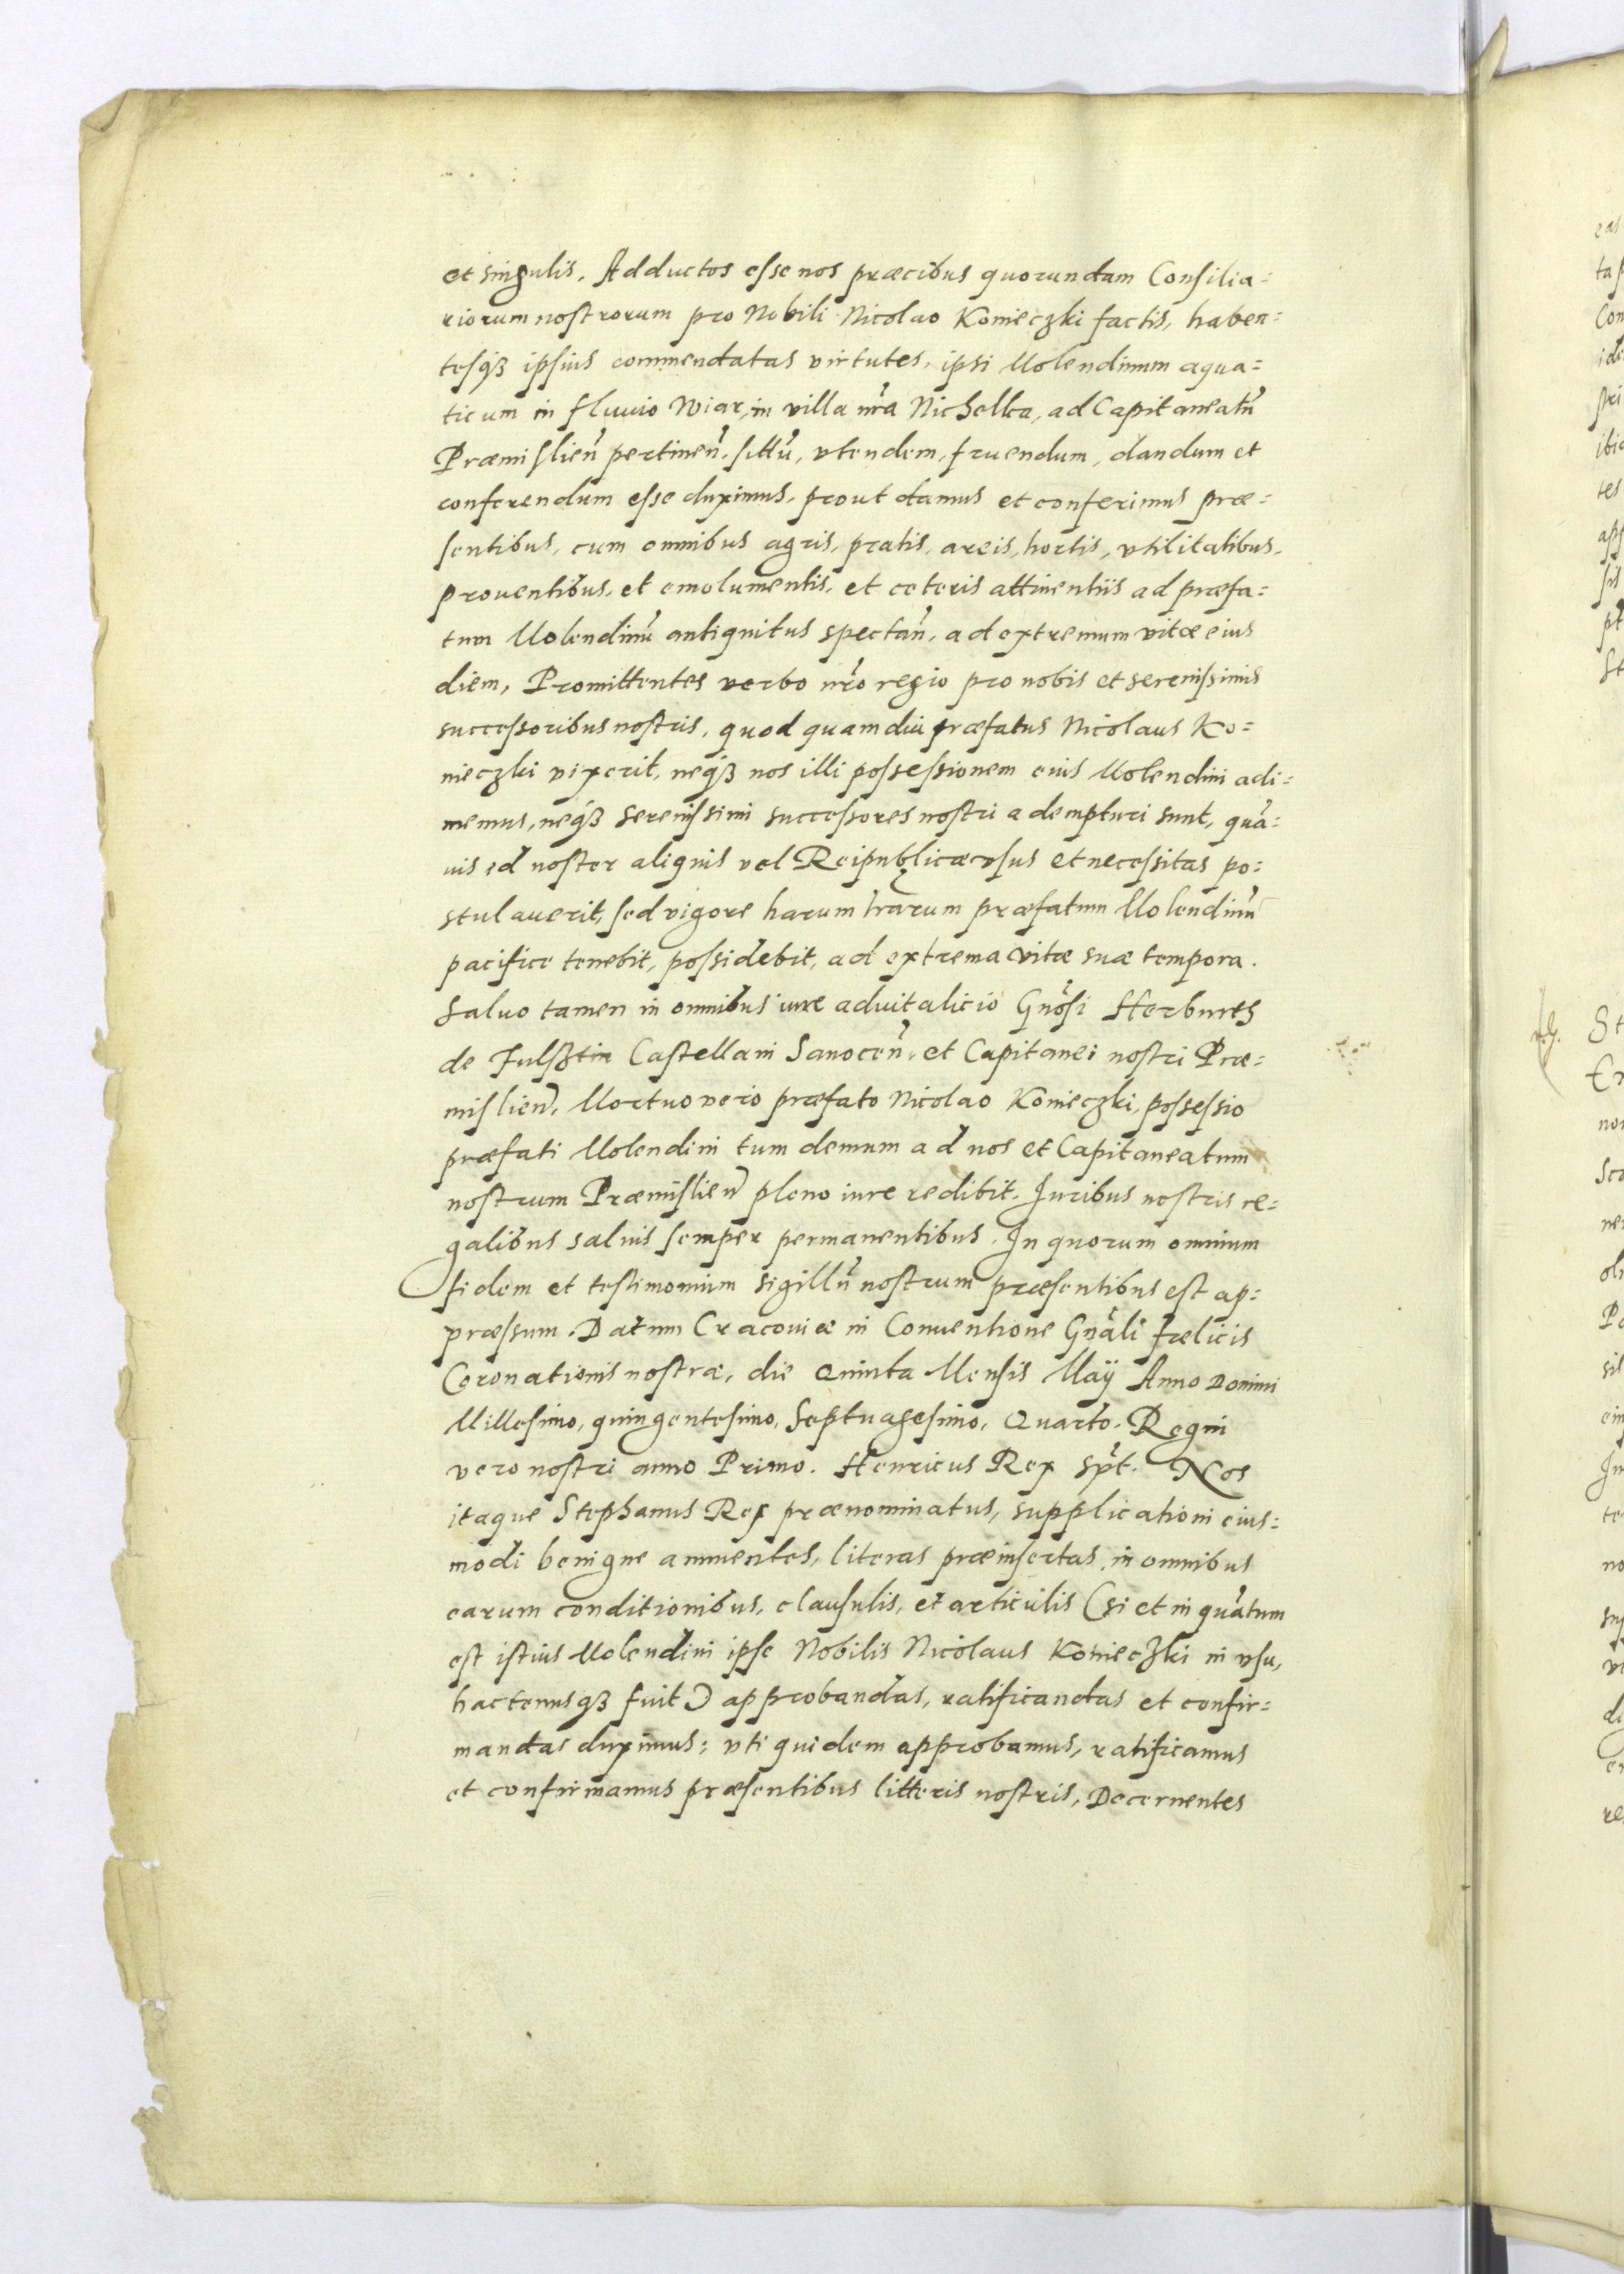 et singulis. Adductos esse nos præcibus quorundam Consilia=
riorum nostrorum pro Nobili Nicolao Konieczki factis, haben=
tesq́ʒ ipsius commendatas virtutes, ipsi Molendinum aqua=
ticum in fluuio Wiar, in villa nr̃a Nichelka, ad Capitaneatũ
Præmislien̄ pertinen̄, sittū, vtendem, fruendum, dandum et
conferendum esse duximus, prout damus et conferimus præ=
sentibus, cum omnibus agris, pratis, areis, hortis, vtilitatibus,
prouentibus, et emolumentis, et ceteris attinentiis ad præfa=
tum Molendinū antiquitus spectan̄, ad extremum vitæ eius
diem, Promittentes verbo nr̃o regio pro nobis et serenissimis
successoribus nostris, quod quamdiu præfatus Nicolaus Ko=
nieczki vixerit, neq́ʒ nos illi possessionem eius Molendini adi=
memus, neq́ʒ serenissimi successores nostri adempturi sunt, quã=
uis id noster aliquis vel Reipublicæ vsus et necessitas po=
stulauerit, sed vigore harum lr̃arum præfatum Molendinū
pacifice tenebit, possidebit, ad extrema vitæ suæ tempora.
Saluo tamen in omnibus iure aduitalicio Gnōsi Herburth
de Fulsztin Castellani Sanocen̄, et Capitanei nostri Præ=
mislien̄. Mortuo vero præfato Nicolao Konieczki, possessio
præfati Molendini tum demum ad nos et Capitaneatum
nostrum Præmislien̄ pleno iure redibit. Iuribus nostris re=
galibus saluis semper permanentibus. In quorum omnium
fidem et testimonium sigillū nostrum præsentibus est ap=
præssum. Datum Cracouiæ in Conuentione Gnāli fælicis
Coronationis nostræ, die Quinta Mensis Maÿ Anno Domini
Millesimo, quingentesimo, Septuagesimo, Quarto. Regni
vero nostri anno Primo. Henricus Rex sp̄t. Nos
itaque Stephanus Rex prænominatus, supplicationi eius=
modi benigne annuentes, literas præinsertas, in omnibus
earum conditionibus, clausulis, et articulis (si et in quãtum
est istius Molendini ipse Nobilis Nicolaus Konieczki in vsu,
hactenusqʒ fuit) approbandas, ratificandas et confir=
mandas duximus: vti quidem approbamus, ratificamus
et confirmamus præsentibus litteris nostris, Decernentes